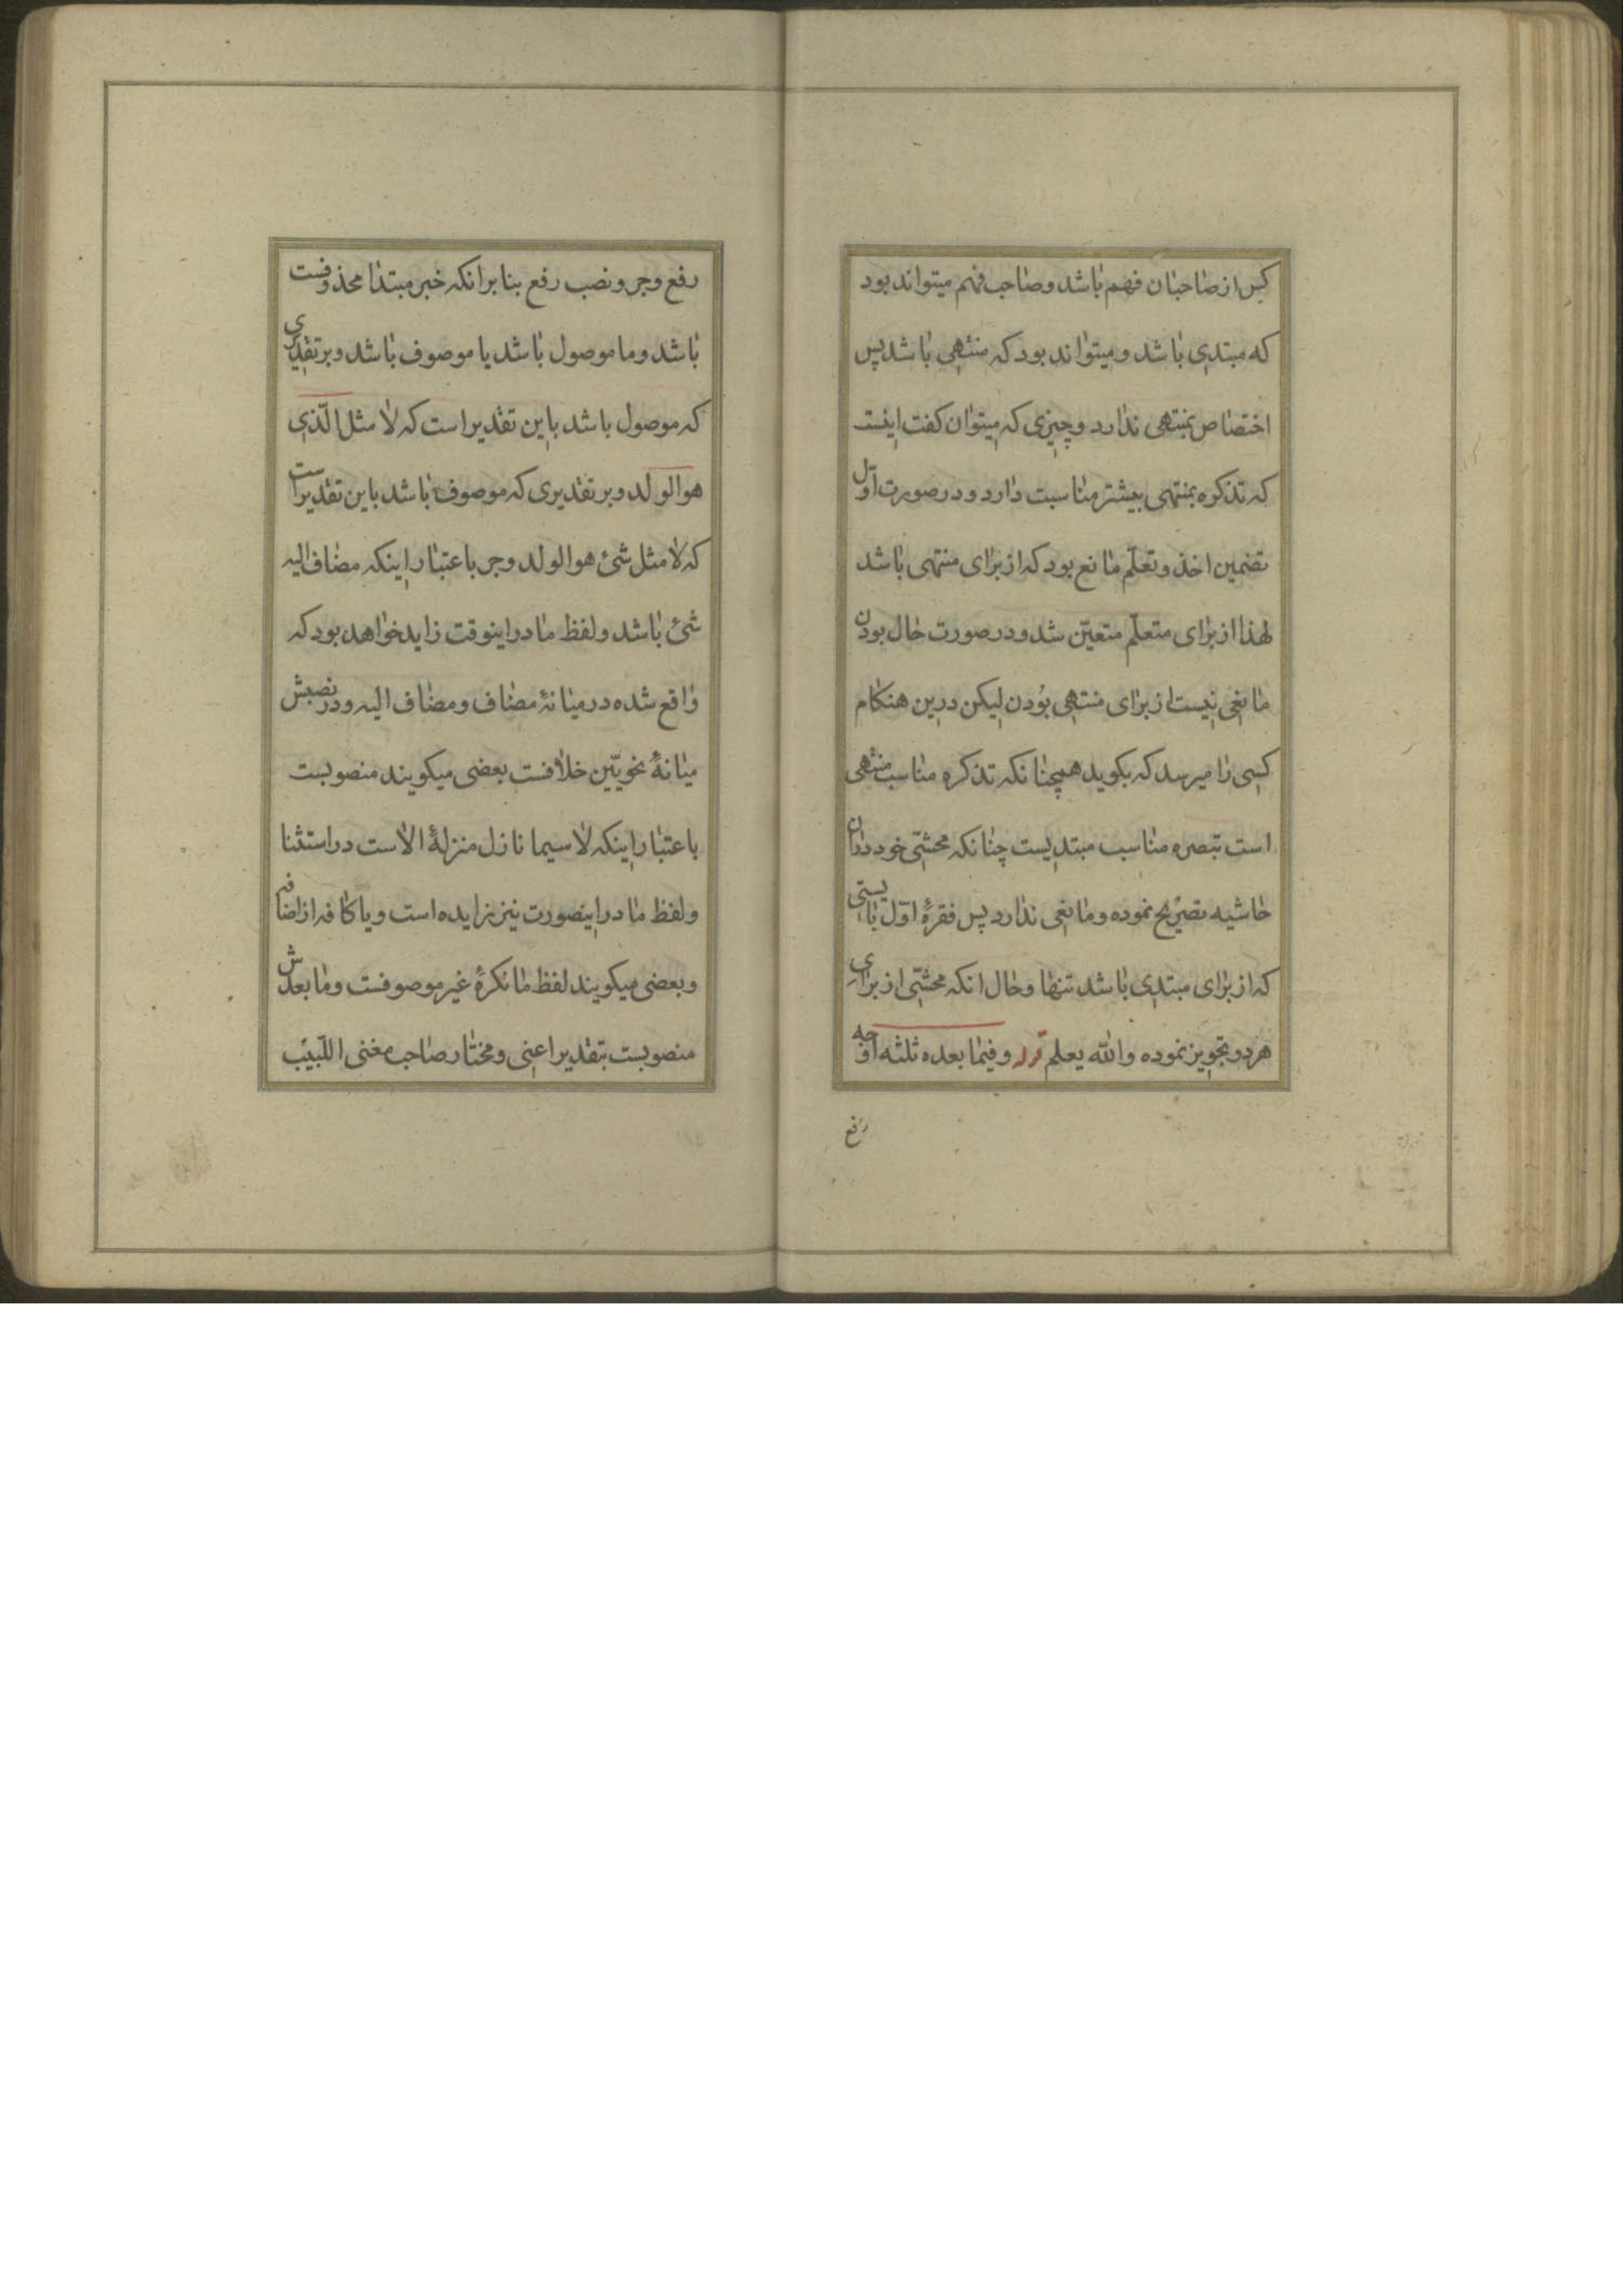 کس از صاحبان فهم باشد و صاحب فهم میتواند بود
که مبتدی باشد و میتواند بود که منتهی باشد پس
اختصاص بمنتهی ندارد و چیزی که میتوان کفت اینست
که تذکره بمنتهی بیشتر مناسبت دارد و در صورت اول
تضمین اخذ و تعلّم مانع بود که از برای منتهی باشد
لهذا از برای متعلّم متعیّن شد و در صورت حال بودن
مانعی نیست از برای منتهی بودن لیکن درین هنکام
کسی را میرسد که بکوید همچنانکه تذکره مناسب منتهی
است تبصره مناسب مبتدیست چنانکه محشّی خود در ان
حاشیه تصریح نموده و مانعی ندارد پس فقرهٔ اوّل بایستی
که از برای مبتدی باشد تنها و حال انکه محشّی از برای
هر دو تجویز نموده والله یعلم قوله وفیما بعده ثلثه اوجه
رفع
رفع و جر و نصب رفع بنا بر انکه خبر مبتدا محذوفست
باشد و ما موصول باشد یا موصوف باشد و بر تقدیری
که موصول باشد باین تقدیر است که لا مثل الّذی
هو الولد و بر تقدیری که موصوف باشد باین تقدیر است
که لا مثل شئ هو الولد و جر باعتبار اینکه مضاف الیه
شئ باشد و لفظ ما در اینوقت زاید خواهد بود که
واقع شده در میانهٔ مضاف و مضاف الیه و در نصبش
میانهٔ نحویّین خلافست بعضی میکویند منصوبست
باعتبار اینکه لا سیما نازل منزلهٔ الاست در استثنا
و لفظ ما در اینصورت نیز زایده است و یا کافه از اضافه
و بعضی میکویند لفظ ما نکرهٔ غیر موصوفست و ما بعدش
منصوبست بتقدیر اعنی و مختار صاحب مغنی اللّبیب